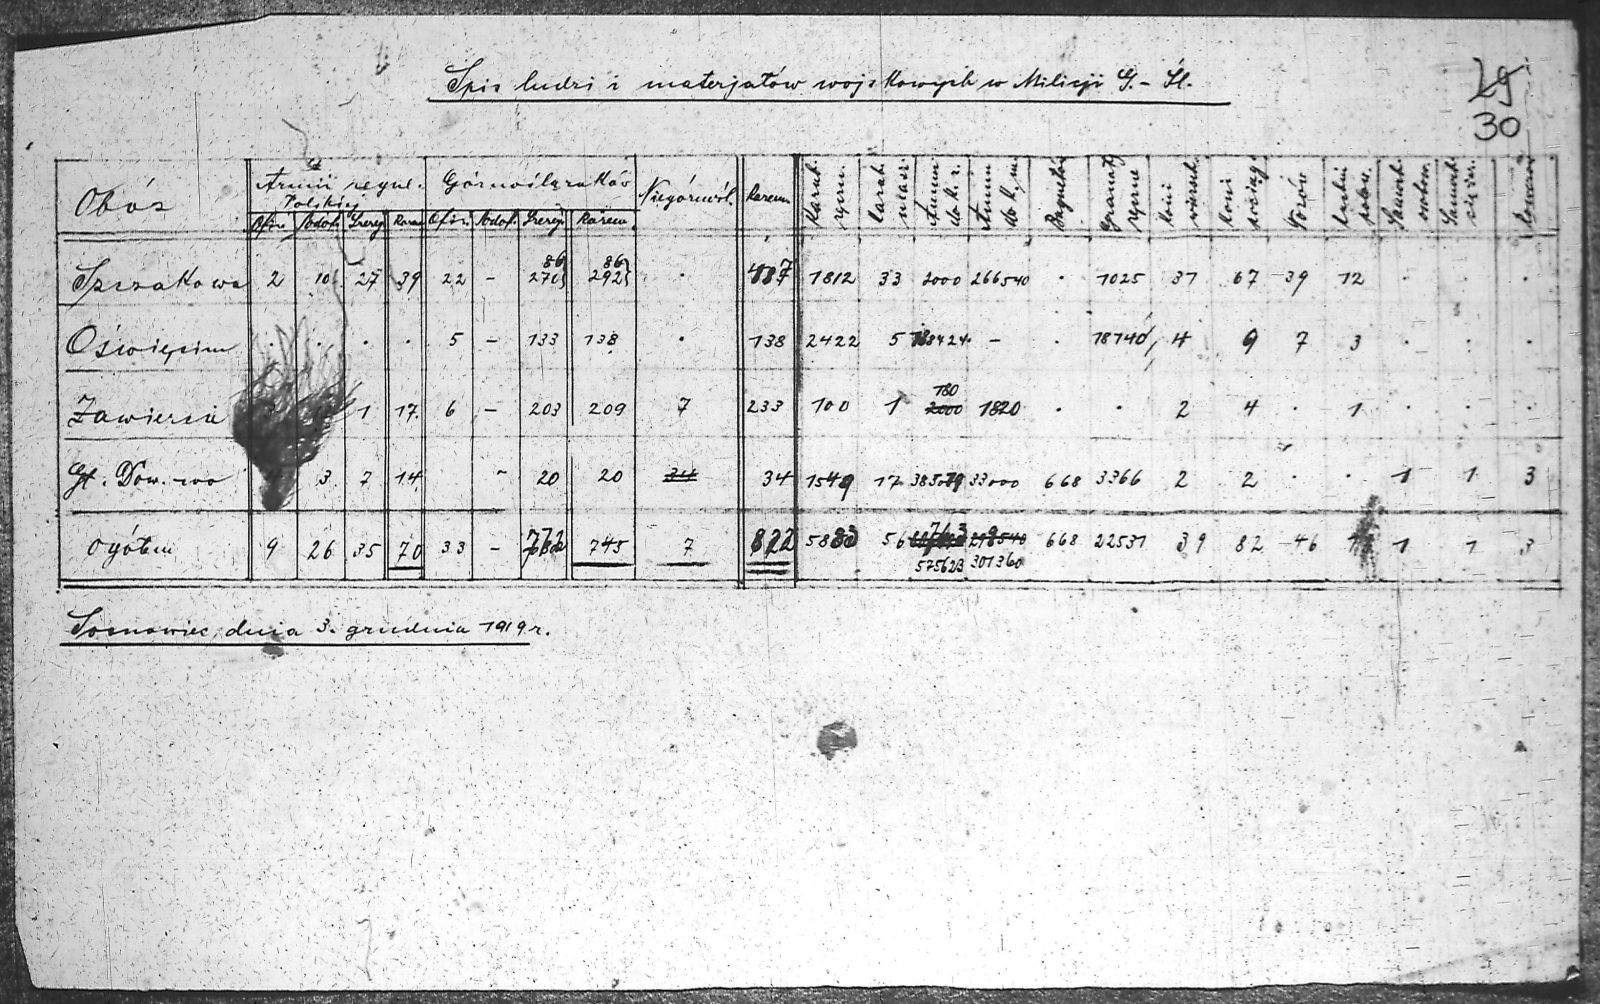 Spis ludzi i materjałów wojskowych w Milicji G.-Śl.
29
30
Obóz Armii regul. Polskiej Górnoślązaków Niegórnośl. Razem Karab. ręczn. karab. masz. Amun. do k. r. Amun. do k. m. Bagnetów Granaty ręczne Koni wierzch. koni pociąg. Wozów kuchni polow.
Ofic. Podof. Szereg. Razem Ofic. Podof. Szereg. Razem
Szczakowa 2 10 27 39 22 - 86 270 86 292 . 417 1812 33 2000 266540 . 1025 31 67 39 12 . . .
Oświęcim . . . . 5 - 133 138 . 138 2422 5 188424 - . 18140 4 9 7 3 . . .
Zawiercie 1 17 6 - 203 209 7 233 100 1 180 2000 1820 . . 2 4 . 1 . . .
Gł. Dow-wo 3 7 14 - 20 20 34 34 1549 17 385019 33000 668 3366 2 2 . . 1 1 3
Ogółem 9 26 35 70 33 - 745 7 822 5883 56 668 22531 39 82 46 1 1 3
575623 301360
Sosnowiec, dnia 3. grudnia 1919 r.